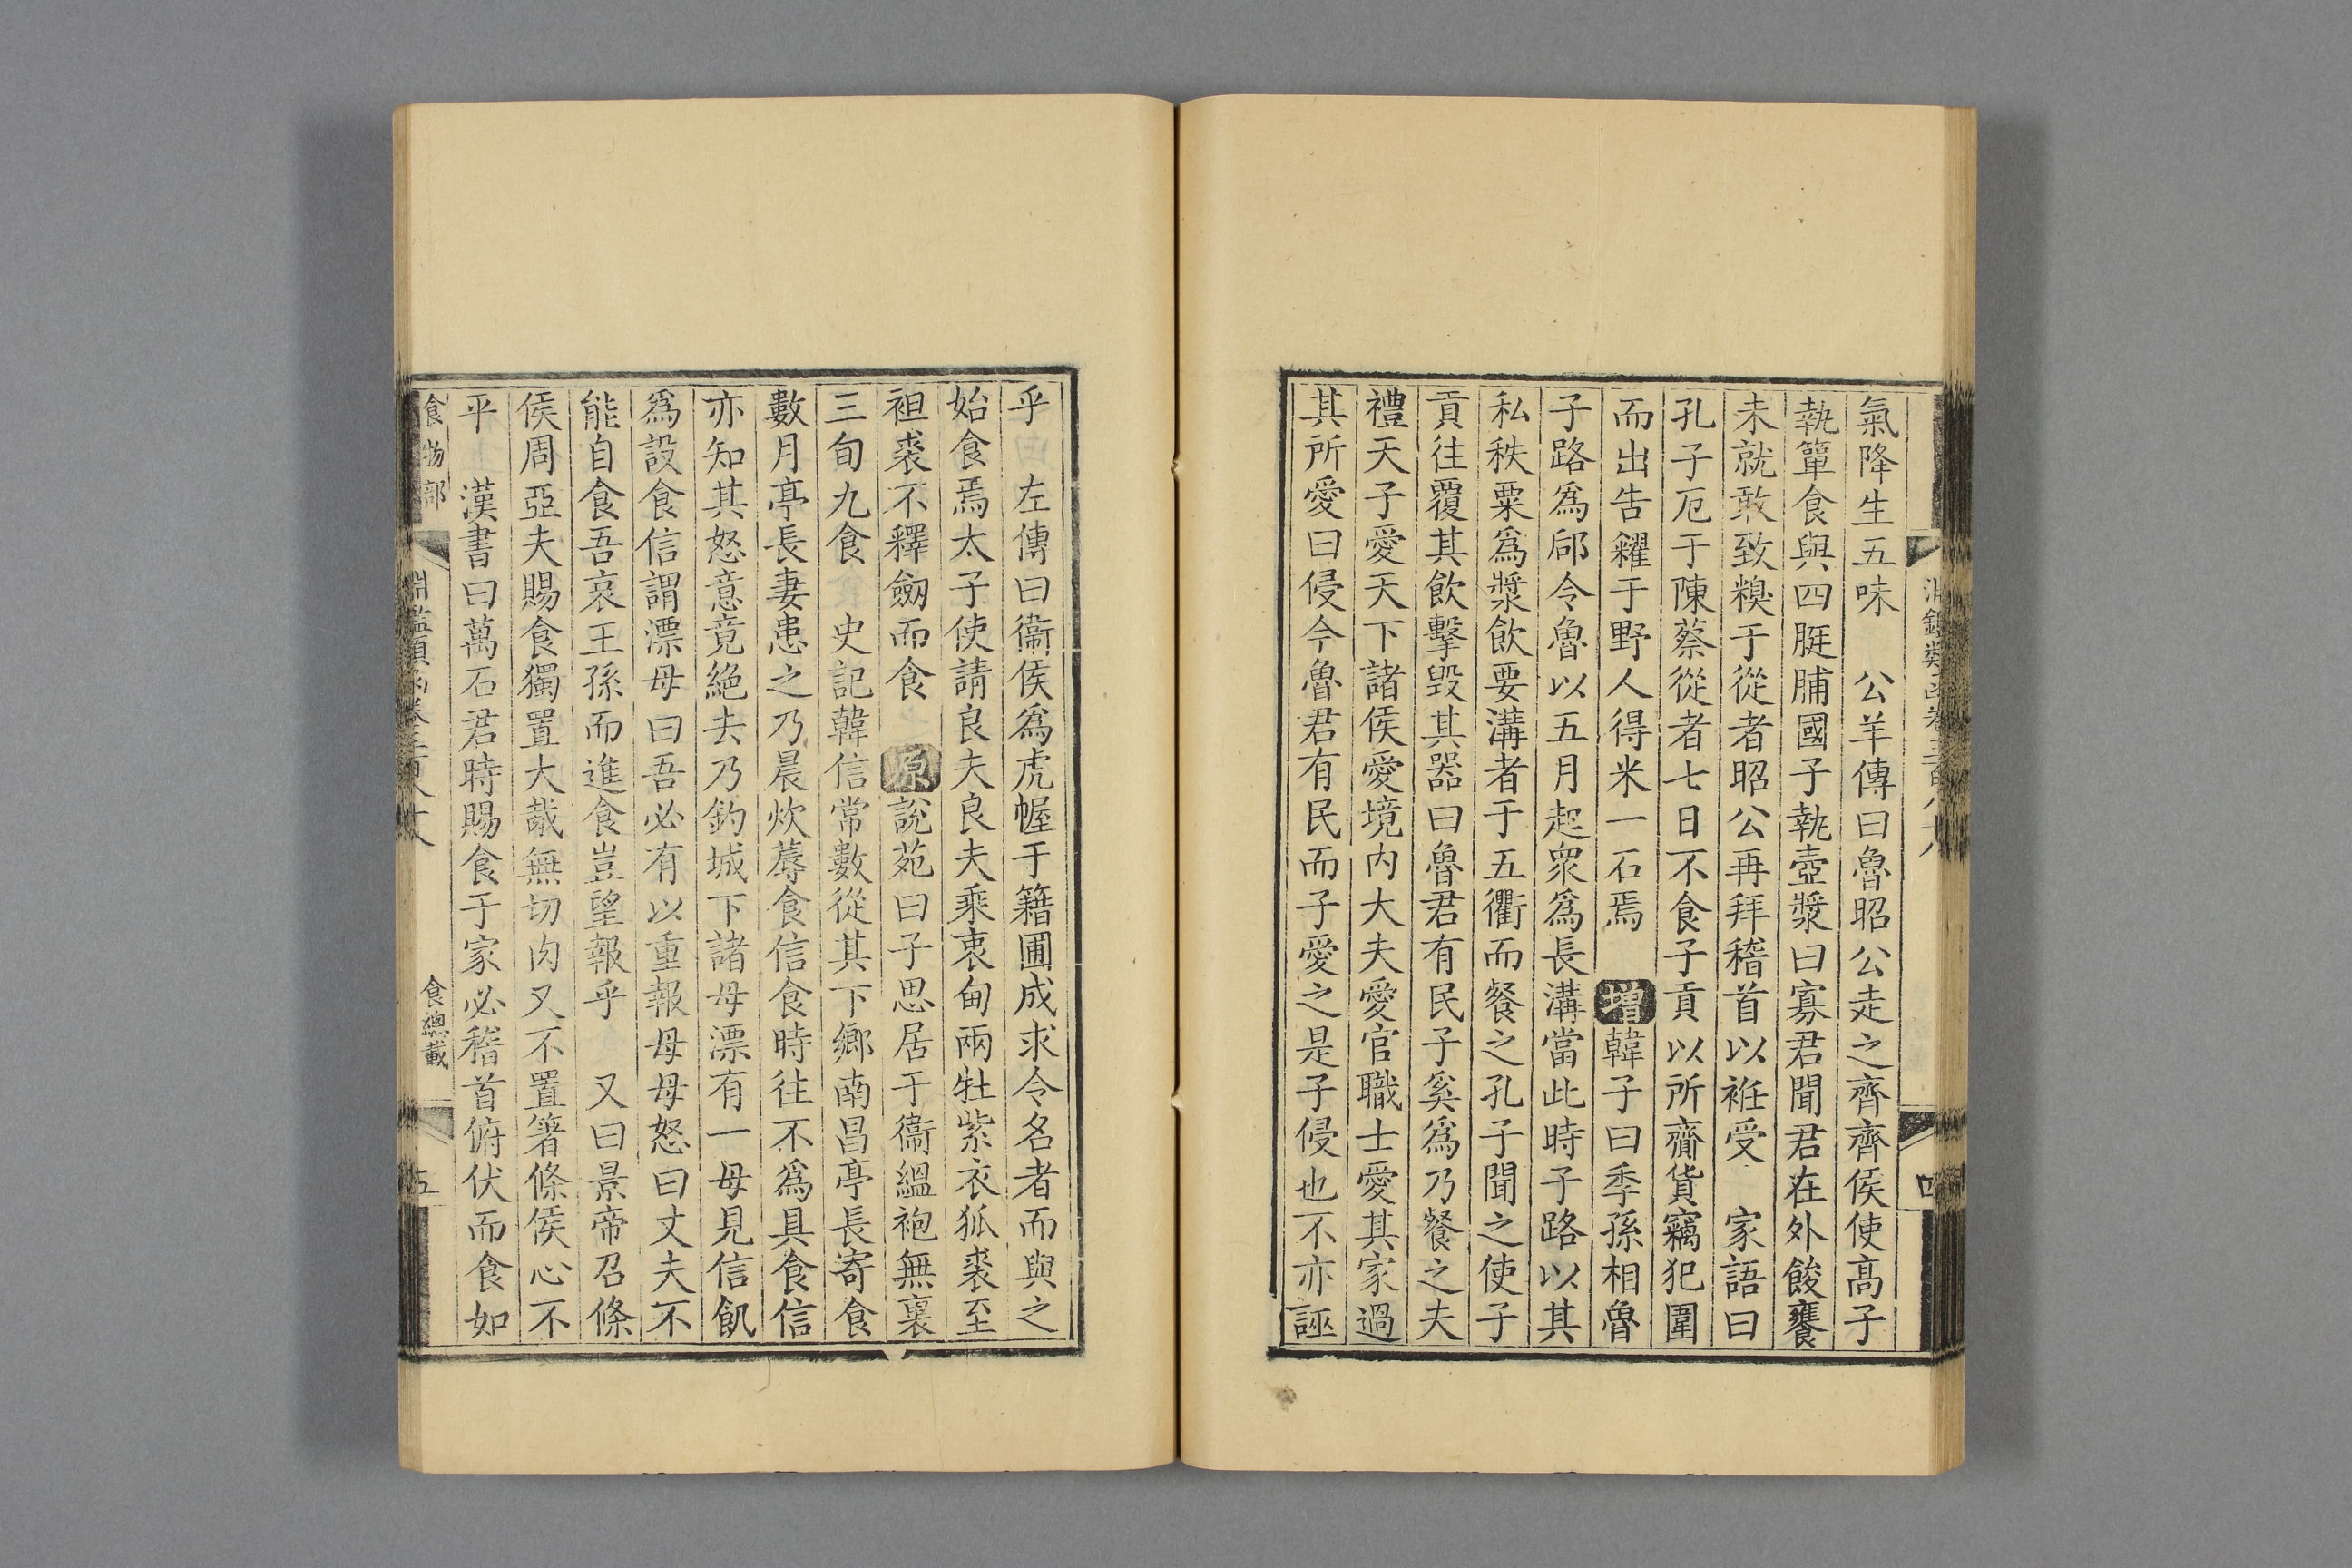 氣降生五味　公羊傳曰魯昭公走之齊齊侯使高子
執簞食與四脡脯國子執壺漿曰寡君聞君在外餕饔
未就敢致糗于從者昭公再拜稽首以袵受　家語曰
孔子厄于陳蔡從者七日不食子貢以所齎貨竊犯圍
而出告糴于野人得米一石焉　增韓子曰季孫相魯
子路爲郈令魯以五月起衆爲長溝當此時子路以其
私秩粟爲漿飲要溝者于五衢而餐之孔子聞之使子
貢往覆其飲擊毀其器曰魯君有民子奚爲乃餐之夫
禮天子愛天下諸侯愛境内大夫愛官職士愛其家過
其所愛曰侵今魯君有民而子愛之是子侵也不亦誣
乎　左傳曰衞侯爲虎幄于籍圃成求令名者而與之
始食焉太子使請良夫良夫乘衷甸兩牡紫衣狐裘至
袒裘不釋劒而食　原說苑曰子思居于衞縕袍無裏
三旬九食　史記韓信常數從其下鄉南昌亭長寄食
數月亭長妻患之乃晨炊蓐食信食時往不爲具食信
亦知其怒意竟絕去乃釣城下諸母漂有一母見信飢
爲設食信謂漂母曰吾必有以重報母母怒曰丈夫不
能自食吾哀王孫而進食豈望報乎　又曰景帝召條
侯周亞夫賜食獨置大胾無切肉又不置箸條侯心不
平　漢書曰萬石君時賜食于家必稽首俯伏而食如
食物部
食總載
五